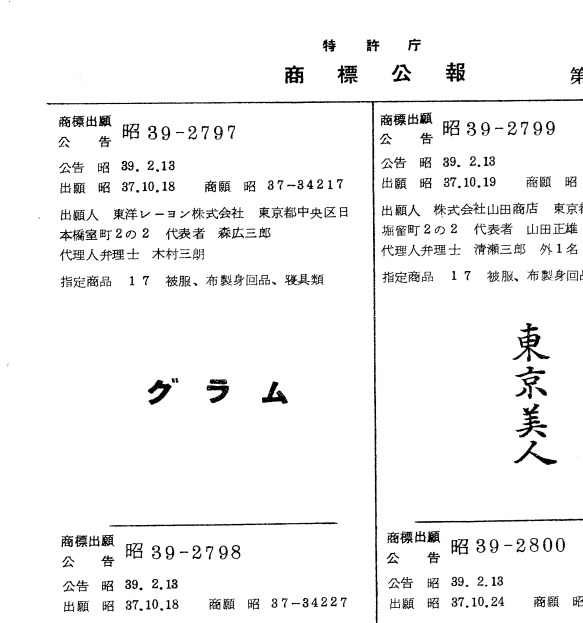 特許庁
商標公報
第
商標出願
公告 昭 39-2797
公告 昭 39.2.13
出願 昭 37.10.18 商願 昭 37-34217
出願人 東洋レーヨン株式会社 東京都中央区日
本橋室町2の2 代表者 森広三郎
代理人弁理士 木村三朗
指定商品 17 被服、布製身回品、寝具類
グラム
商標出願
公告 昭 39-2798
公告 昭 39.2.13
出願 昭 37.10.18 商願 昭 37-34227
商標出願
公告 昭 39-2799
公告 昭 39.2.13
出願 昭 37.10.19 商願 昭
出願人 株式会社山田商店 東京
堀留町2の2 代表者 山田正雄
代理人弁理士 清瀬三郎 外1名
指定商品 17 被服、布製身回
東京美人
商標出願
公告 昭 39-2800
公告 昭 39.2.13
出願 昭 37.10.24 商願